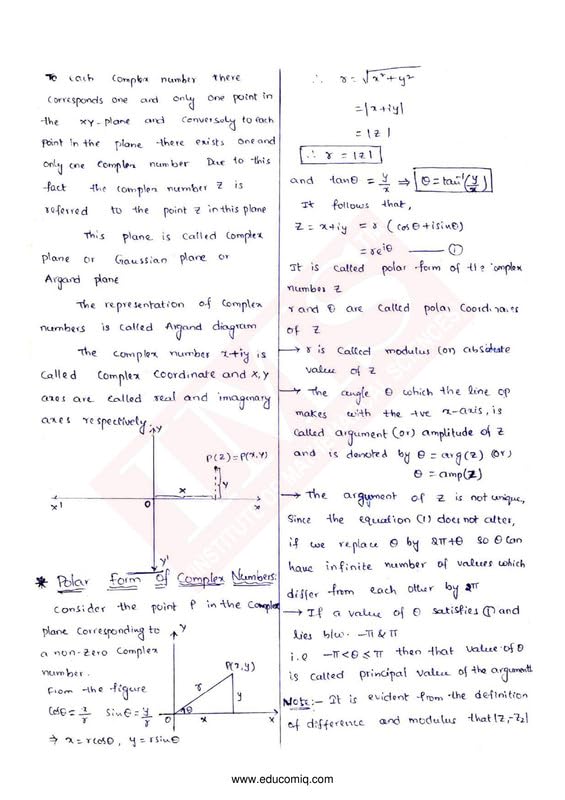 To each complex number there
corresponds one and only one point in
the xy-plane and conversely to each
point in the plane there exists one and
only one complex number Due to this
fact the complex number z is
referred to the point z in this plane
This plane is called complex
plane or Gaussian plane or
Argand plane
The representation of complex
numbers is called Argand diagram
The complex number x+iy is
called complex coordinate and x, y
axes are called real and imagenary
axes respectively.
Y
P(z) = P(x,y)
y
x
x'
O
x
Y'
* Polar Form Of Complex Numbers:
Consider the point P in the complex
plane corresponding to
a non-zero complex
number.
From the figure
cosθ = x/r sinθ = y/r
⇒ x = rcosθ, y = rsinθ
Y
P(x,y)
r
y
θ
O
x
x
∴ r = √x²+y²
= |x+iy|
= |z|
∴ r = |z|
and tanθ = y/x ⇒ θ = tan⁻¹(y/x)
It follows that,
z = x+iy = r (cosθ+isinθ)
= re^iθ — ①
It is called polar form of the complex
number z
r and θ are called polar coordinates
of z
→ r is called modulus (or) absolute
value of z
→ The angle θ which the line op
makes with the +ve x-axis, is
called argument (or) amplitude of z
and is denoted by θ = arg(z) (or)
θ = amp(z)
→ The argument of z is not unique,
since the equation (1) does not alter,
if we replace θ by 2π+θ so θ can
have infinite number of values which
differ from each other by 2π
→ If a value of θ satisfies ① and
lies b/w. -π & π
i.e -π<θ≤π then that value of θ
is called principal value of the argument
Note:- It is evident from the definition
of difference and modulus that |z₁-z₂|
INSTITUTE
www.educomiq.com